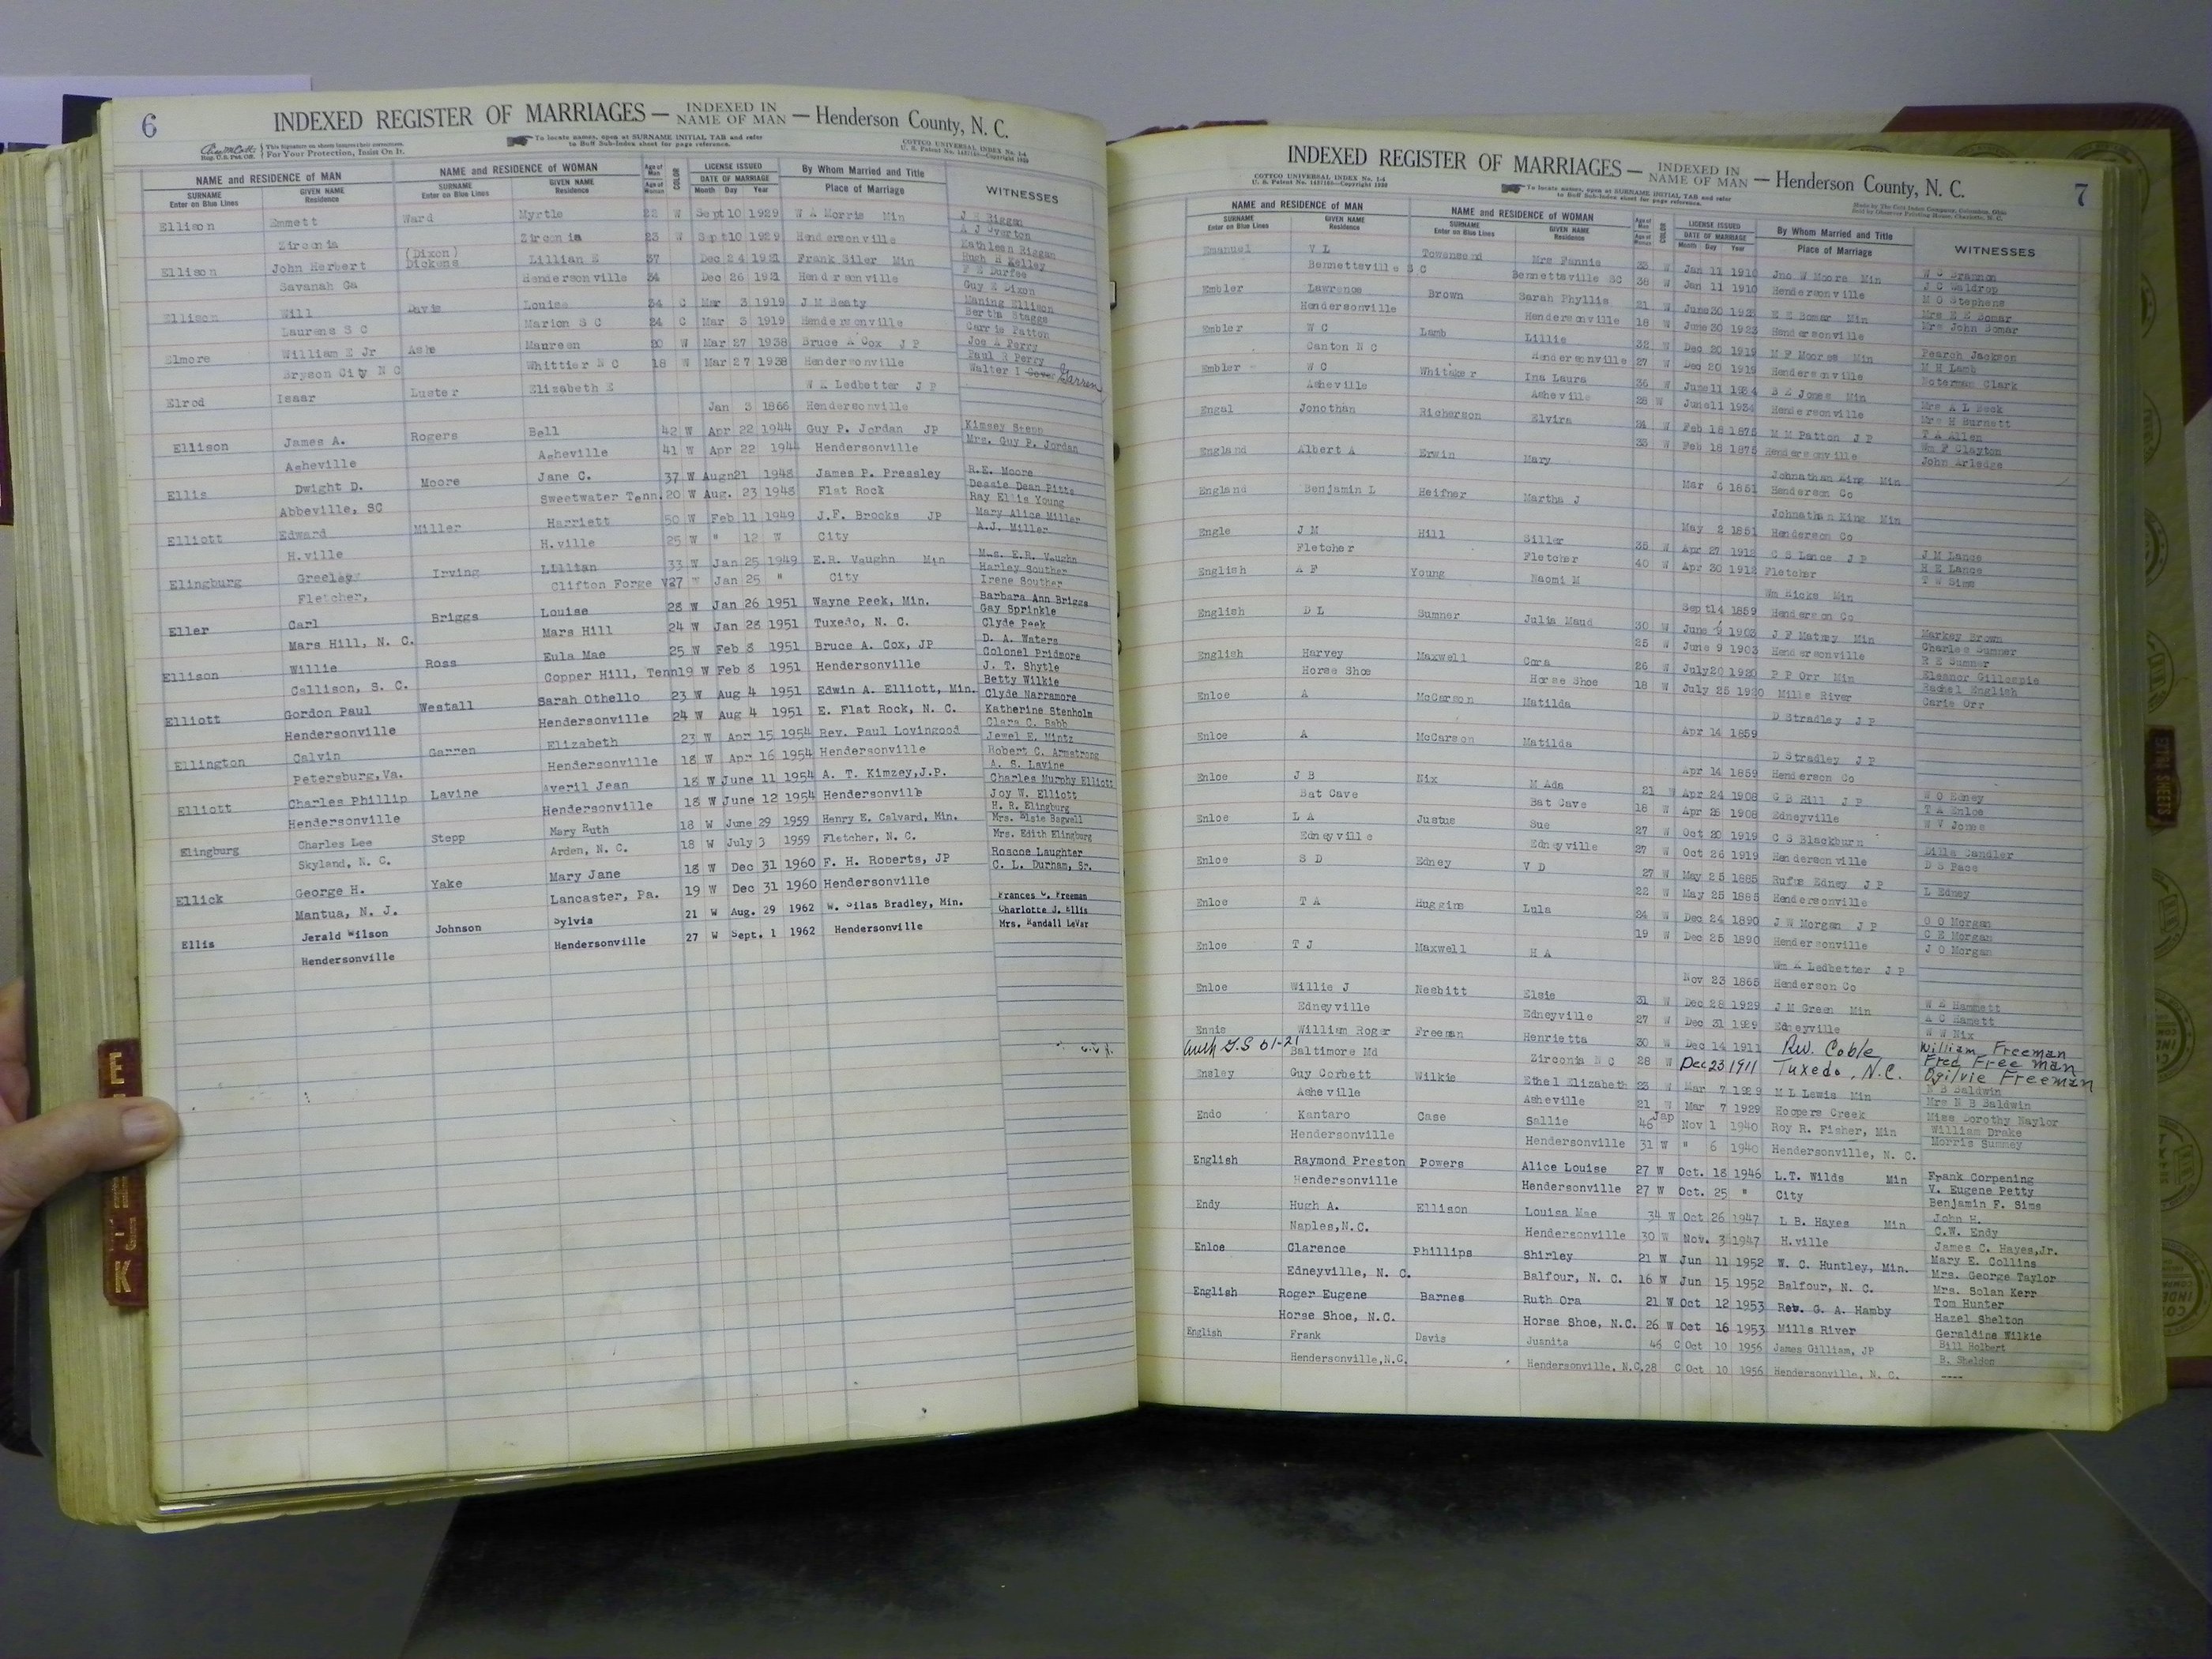 6
INDEXED REGISTER OF MARRIAGES — INDEXED IN NAME OF MAN — Henderson County, N. C.
This Signature on sheets insures their correctness.
Reg. U. S. Pat. Off. For Your Protection, Insist On It.
To locate names, open at SURNAME INITIAL TAB and refer to Buff Sub-Index sheet for page reference.
COTTCO UNIVERSAL INDEX No. 1-4
NAME and RESIDENCE of MAN NAME and RESIDENCE of WOMAN Age of Man COLOR LICENSE ISSUED By Whom Married and Title WITNESSES
SURNAME Enter on Blue Lines GIVEN NAME Residence SURNAME Enter on Blue Lines GIVEN NAME Residence Age of Woman DATE OF MARRIAGE Month Day Year Place of Marriage
Ellison Emmett Ward Myrtle 22 W Sept 10 1929 W A Morris Min J H Biggan
Zirconia Zirconia 23 W Sept 10 1929 Hendersonville A J Overton
Kathleen Riggan
Ellison John Herbert (Dixon) Dickens Lillian E 37 Dec 24 1921 Frank Siler Min Hugh H Kelley
Savanah Ga Hendersonville 34 Dec 26 1921 Hendersonville F E Durfee
Guy E Dixon
Ellison Will Davis Louise 34 C Mar 3 1919 J M Beaty Maning Ellison
Laurens S C Marion S C 24 C Mar 3 1919 Hendersonville Bertha Staggs
Carrie Patton
Elmore William E Jr Ashe Maureen 20 W Mar 27 1938 Bruce A Cox J P Joe A Perry
Bryson City N C Whittier N C 18 W Mar 27 1938 Hendersonville Paul R Perry
Walter I Garren
Elrod Isaar Luster Elizabeth E W K Ledbetter J P
Jan 3 1866 Hendersonville
Ellison James A. Rogers Bell 42 W Apr 22 1944 Guy P. Jordan JP Kimsey Stepp
Asheville Asheville 41 W Apr 22 1944 Hendersonville Mrs. Guy P. Jordan
Ellis Dwight D. Moore Jane C. 37 W Augn21 1948 James P. Pressley R.E. Moore
Abbeville, SC Sweetwater Tenn. 20 W Aug. 23 1948 Flat Rock Dessie Dean Pitts
Ray Ellis Young
Elliott Edward Miller Harriett 50 W Feb 11 1949 J.F. Brooks JP Mary Alice Miller
H.ville H.ville 25 W " 12 W City A.J. Miller
Elingburg Greeley Irving Lillian 33 W Jan 25 1949 E.R. Vaughn Min Mrs. E.R. Vaughn
Fletcher, Clifton Forge V 27 W Jan 25 " City Harley Souther
Irene Souther
Eller Carl Briggs Louise 28 W Jan 26 1951 Wayne Peek, Min. Barbara Ann Briggs
Mars Hill, N. C. Mars Hill 24 W Jan 28 1951 Tuxedo, N. C. Gay Sprinkle
Clyde Peek
Ellison Willie Ross Eula Mae 25 W Feb 8 1951 Bruce A. Cox, JP D. A. Waters
Callison, S. C. Copper Hill, Tenn 19 W Feb 8 1951 Hendersonville Colonel Pridmore
J. T. Shytle
Elliott Gordon Paul Westall Sarah Othello 23 W Aug 4 1951 Edwin A. Elliott, Min. Betty Wilkie
Hendersonville Hendersonville 24 W Aug 4 1951 E. Flat Rock, N. C. Clyde Narramore
Katherine Stenholm
Ellington Calvin Garren Elizabeth 23 W Apr 15 1954 Rev. Paul Lovingood Clara C. Babb
Petersburg,Va. Hendersonville 18 W Apr 16 1954 Hendersonville Jewel E. Mintz
Robert C. Armstrong
Elliott Charles Phillip Lavine Averil Jean 18 W June 11 1954 A. T. Kimzey,J.P. A. S. Lavine
Hendersonville Hendersonville 18 W June 12 1954 Hendersonville Charles Murphy Elliott
Joy W. Elliott
Elingburg Charles Lee Stepp Mary Ruth 18 W June 29 1959 Henry E. Calvard, Min. H. R. Elingburg
Skyland, N. C. Arden, N. C. 18 W July 3 1959 Fletcher, N. C. Mrs. Elsie Bagwell
Mrs. Edith Elingburg
Ellick George H. Yake Mary Jane 18 W Dec 31 1960 F. H. Roberts, JP Roscoe Laughter
Mantua, N. J. Lancaster, Pa. 19 W Dec 31 1960 Hendersonville C. L. Durham, Sr.
Ellis Jerald Wilson Johnson Sylvia 21 W Aug. 29 1962 W. Silas Bradley, Min. Frances C. Freeman
Hendersonville Hendersonville 27 W Sept. 1 1962 Hendersonville Charlotte J. Ellis
Mrs. Randall LeVar
E
K
7
INDEXED REGISTER OF MARRIAGES — INDEXED IN NAME OF MAN — Henderson County, N. C.
COTTCO UNIVERSAL INDEX No. 1-4
To locate names, open at SURNAME INITIAL TAB and refer to Buff Sub-Index sheet for page reference.
Made by The Cott Index Company, Columbus, Ohio
Sold by Observer Printing House, Charlotte, N. C.
NAME and RESIDENCE of MAN NAME and RESIDENCE of WOMAN Age of Man COLOR LICENSE ISSUED By Whom Married and Title WITNESSES
SURNAME Enter on Blue Lines GIVEN NAME Residence SURNAME Enter on Blue Lines GIVEN NAME Residence DATE OF MARRIAGE Month Day Year Place of Marriage
Emanuel V L Townsend Mrs Fannie 33 W Jan 11 1910 Jno W Moore Min W C Brannon
Bennettsville S C Bennettsville SC 38 W Jan 11 1910 Hendersonville J C Waldrop
M O Stephens
Embler Lawrence Brown Sarah Phyllis 21 W June 30 E E Bomar Min Mrs E E Bomar
Hendersonville Hendersonville 18 W June 30 1923 Hendersonville Mrs John Bomar
Embler W C Lamb Lillie 32 W Dec 20 1919 M F Moores Min Pearch Jackson
Canton N C Hendersonville 27 W Dec 20 1919 Hendersonville M H Lamb
Noterman Clark
Embler W C Whitaker Ina Laura 36 W June 11 1934 B E Jones Min Mrs A L Beck
Asheville Asheville 28 W June 11 1934 Hendersonville Mrs H Burnett
Engal Jonothan Richerson Elvira 24 W Feb 18 1875 M M Patton J P T A Allen
35 W Feb 18 1875 Hendersonville Wm F Clayton
John Arledge
England Albert A Erwin Mary Johnathan King Min
Mar 6 1851 Henderson Co
England Benjamin L Heifner Martha J Johnathan King Min
May 2 1851 Henderson Co
Engle J M Hill Siller 35 W Apr 27 1912 C S Lance J P J M Lance
Fletcher Fletcher 40 W Apr 30 1912 Fletcher H E Lance
T W Sims
English A F Young Naomi M Wm Hicks Min
Sept 14 1859 Henderson Co
English D L Sumner Julia Maud 30 W June 9 1903 J F Matney Min Markey Brown
25 W June 9 1903 Hendersonville Charles Sumner
R E Sumner
English Harvey Maxwell Cora 26 W July 20 1920 P P Orr Min Eleanor Gillespie
Horse Shoe Horse Shoe 18 W July 25 1920 Mills River Rachel English
Carie Orr
Enloe A McCarson Matilda D Stradley J P
Apr 14 1859
Enloe A McCarson Matilda D Stradley J P
Apr 14 1859 Henderson Co
Enloe J B Nix M Ada 21 W Apr 24 1908 G B Hill J P W O Edney
Bat Cave Bat Cave 18 W Apr 26 1908 Edneyville T A Enloe
W V Jones
Enloe L A Justus Sue 27 W Oct 20 1919 C S Blackburn
Edneyville Edneyville 27 W Oct 26 1919 Hendersonville Dills Candler
D S Pace
Enloe S D Edney V D 27 W May 25 1885 Rufus Edney J P L Edney
22 W May 25 1885 Hendersonville
Enloe T A Huggins Lula 24 W Dec 24 1890 J W Morgan J P O O Morgan
19 W Dec 25 1890 Hendersonville C E Morgan
J O Morgan
Enloe T J Maxwell H A Wm K Ledbetter J P
Nov 23 1865 Henderson Co
Enloe Willie J Nesbitt Elsie 31 W Dec 28 1929 J M Green Min W E Hammett
Edneyville Edneyville 27 W Dec 31 1929 Edneyville A C Hamett
W W Nix
Ennis William Roger Freeman Henrietta 30 W Dec 14 1911 R.W. Coble William Freeman
Auth G.S 51-21 Baltimore Md Zirconia N C 28 W Dec 23 1911 Tuxedo, N.C. Fred Freeman
Ogilvie Freeman
Ensley Guy Corbett Wilkie Ethel Elizabeth 23 W Mar 7 1929 M L Lewis Min N B Baldwin
Asheville Asheville 21 W Mar 7 1929 Hoopers Creek Mrs N B Baldwin
Miss Dorothy Naylor
Endo Kantaro Case Sallie 46 Jap Nov 1 1940 Roy R. Fisher, Min William Drake
Hendersonville Hendersonville 31 W " 6 1940 Hendersonville, N. C. Morris Summey
English Raymond Preston Powers Alice Louise 27 W Oct. 18 1946 L.T. Wilds Min Frank Corpening
Hendersonville Hendersonville 27 W Oct. 25 " City V. Eugene Petty
Benjamin F. Sims
Endy Hugh A. Ellison Louisa Mae 34 W Oct 26 1947 L B. Hayes Min John H.
Naples,N.C. Hendersonville 30 W Nov. 3 1947 H.ville C.W. Endy
James C. Hayes,Jr.
Enloe Clarence Phillips Shirley 21 W Jun 11 1952 W. C. Huntley, Min. Mary E. Collins
Edneyville, N. C. Balfour, N. C. 16 W Jun 15 1952 Balfour, N. C. Mrs. George Taylor
Mrs. Solan Kerr
English Roger Eugene Barnes Ruth Ora 21 W Oct 12 1953 Rev. G. A. Hamby Tom Hunter
Horse Shoe, N.C. Horse Shoe, N.C. 26 W Oct 16 1953 Mills River Hazel Shelton
Geraldine Wilkie
English Frank Davis Juanita 46 C Oct 10 1956 James Gilliam, JP Bill Holbert
Hendersonville,N.C. Hendersonville, N.C. 28 C Oct 10 1956 Hendersonville, N. C. B. Sheldon
----